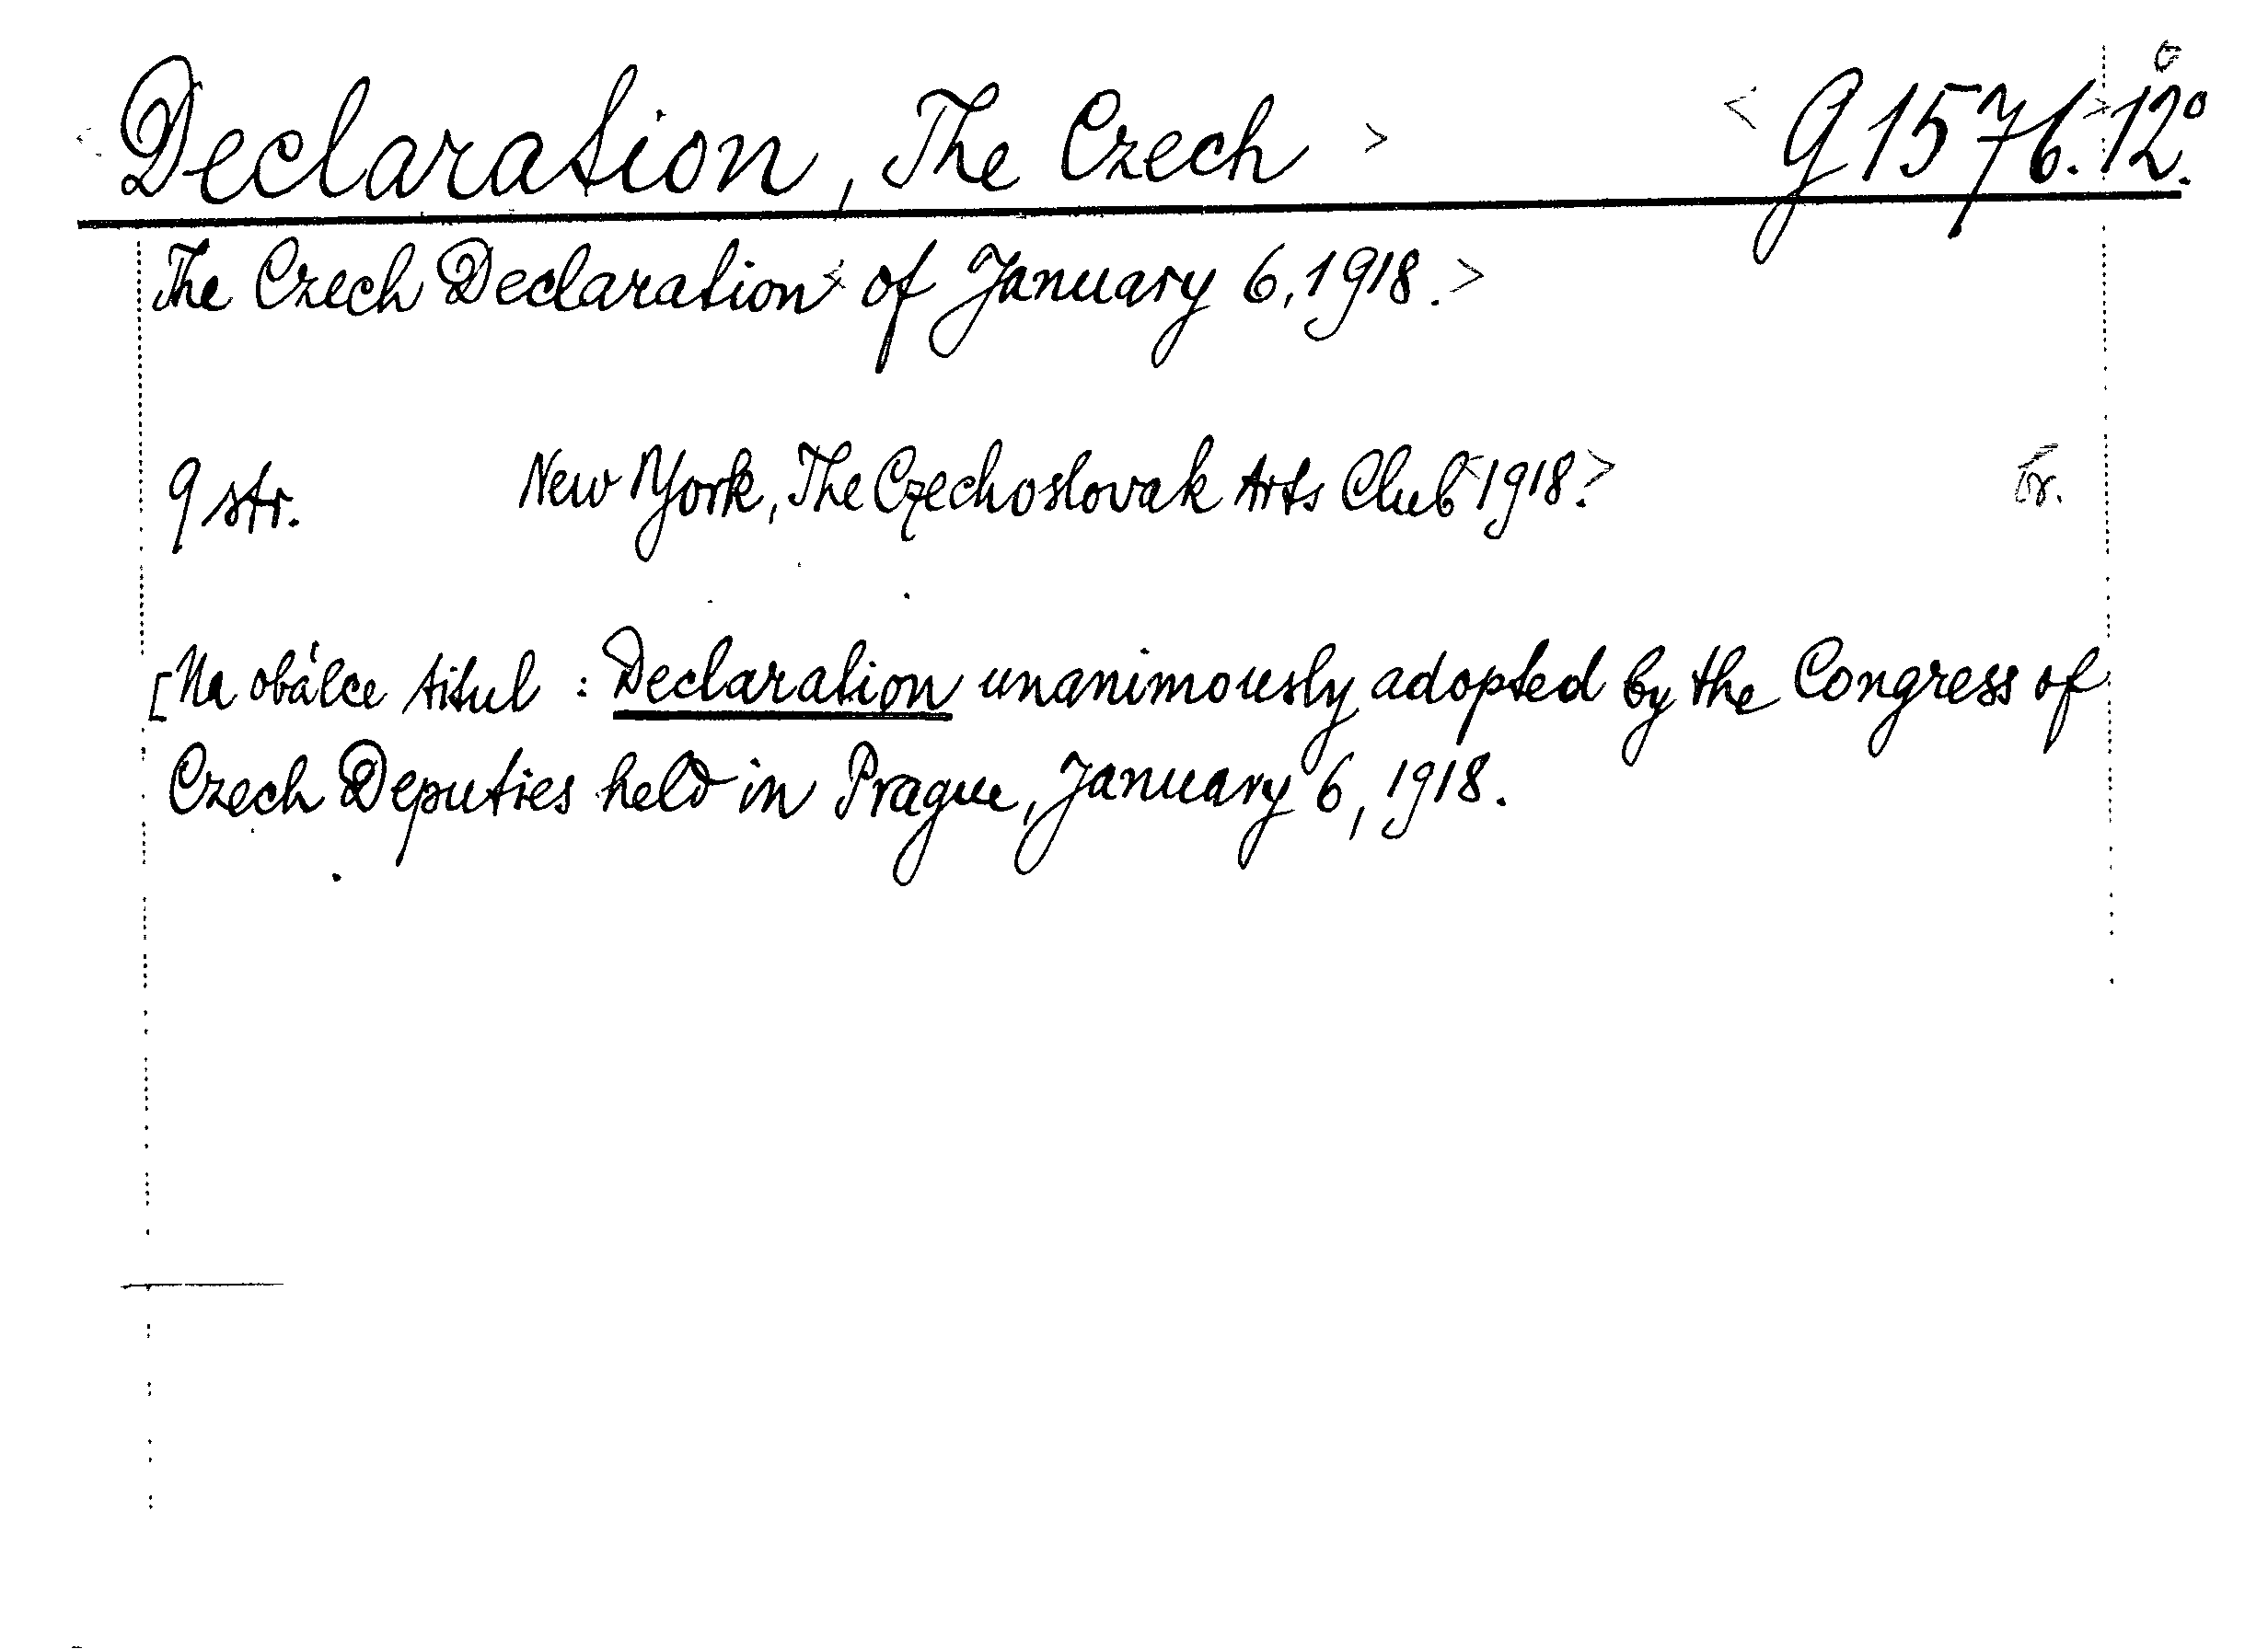 < Declaration, The Czech > < g 1576. > 12°.
The Czech Declaration < of January 6, 1918. >
9 str. New York, The Czechoslovak Arts Club < 1918. >
[Na obálce titul : Declaration unanimously adopted by the Congress of
Czech Deputies held in Prague, January 6, 1918.